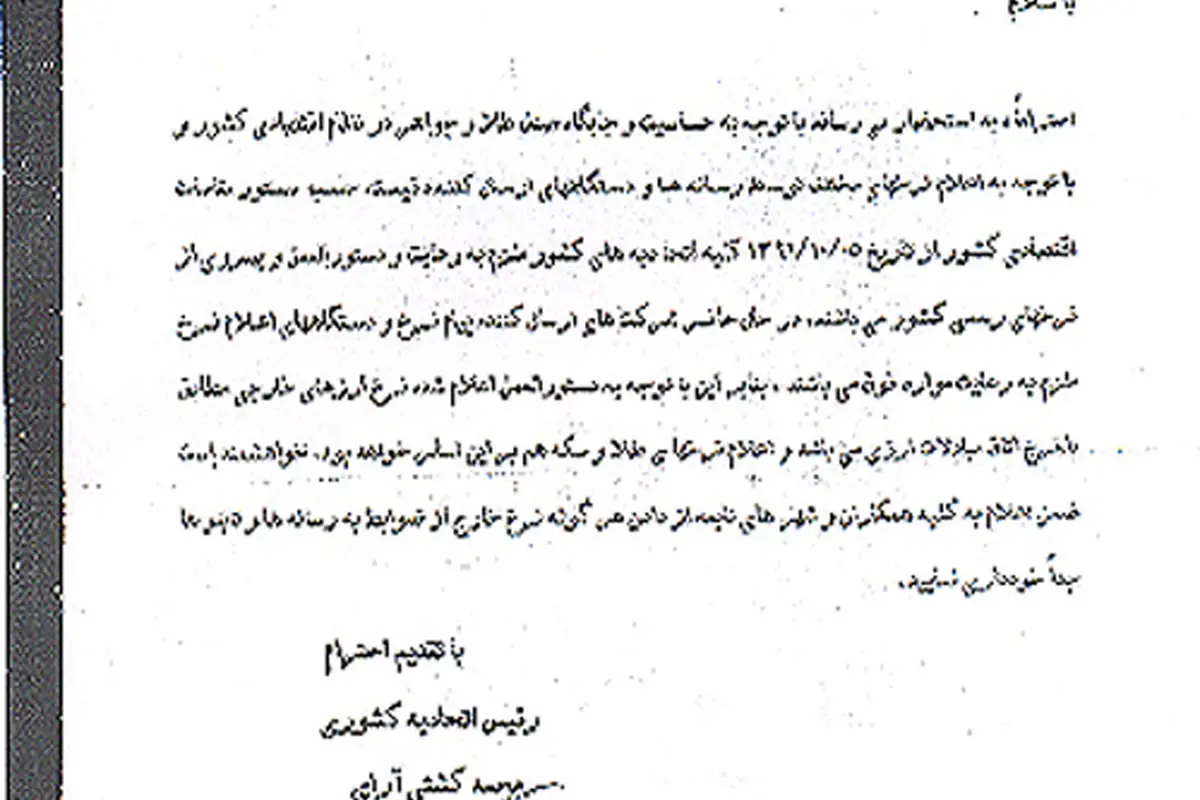 با سلام
احتراماً، به استحضار می رساند با توجه به حساسیت و جایگاه صنف طلا و جواهر در نظام اقتصادی کشور و
با توجه به اعلام نرخهای مختلف توسط رسانه ها و دستگاههای ارسال کننده قیمت، حسب دستور مقامات
اقتصادی کشور از تاریخ ۱۳۹۱/۱۰/۰۵ کلیه اتحادیه های کشور ملزم به رعایت و دستورالعمل و پیروی از
نرخهای رسمی کشور می باشند، در حال حاضر شرکت های ارسال کننده پیام نرخ و دستگاههای اعلام نرخ
ملزم به رعایت موارد فوق می باشند ، بنابر این با توجه به دستورالعمل اعلام شده نرخ ارزهای خارجی مطابق
با نرخ اتاق مبادلات ارزی می باشد و اعلام نرخهای طلا و سکه هم بر این اساس خواهد بود. خواهشمند است
ضمن اعلام به کلیه همکاران و شهر های تابعه از دادن هر گونه نرخ خارج از ضوابط به رسانه ها و
جداً خودداری نمایید.
با تقدیم احترام
رئیس اتحادیه کشوری
کشتی آرای